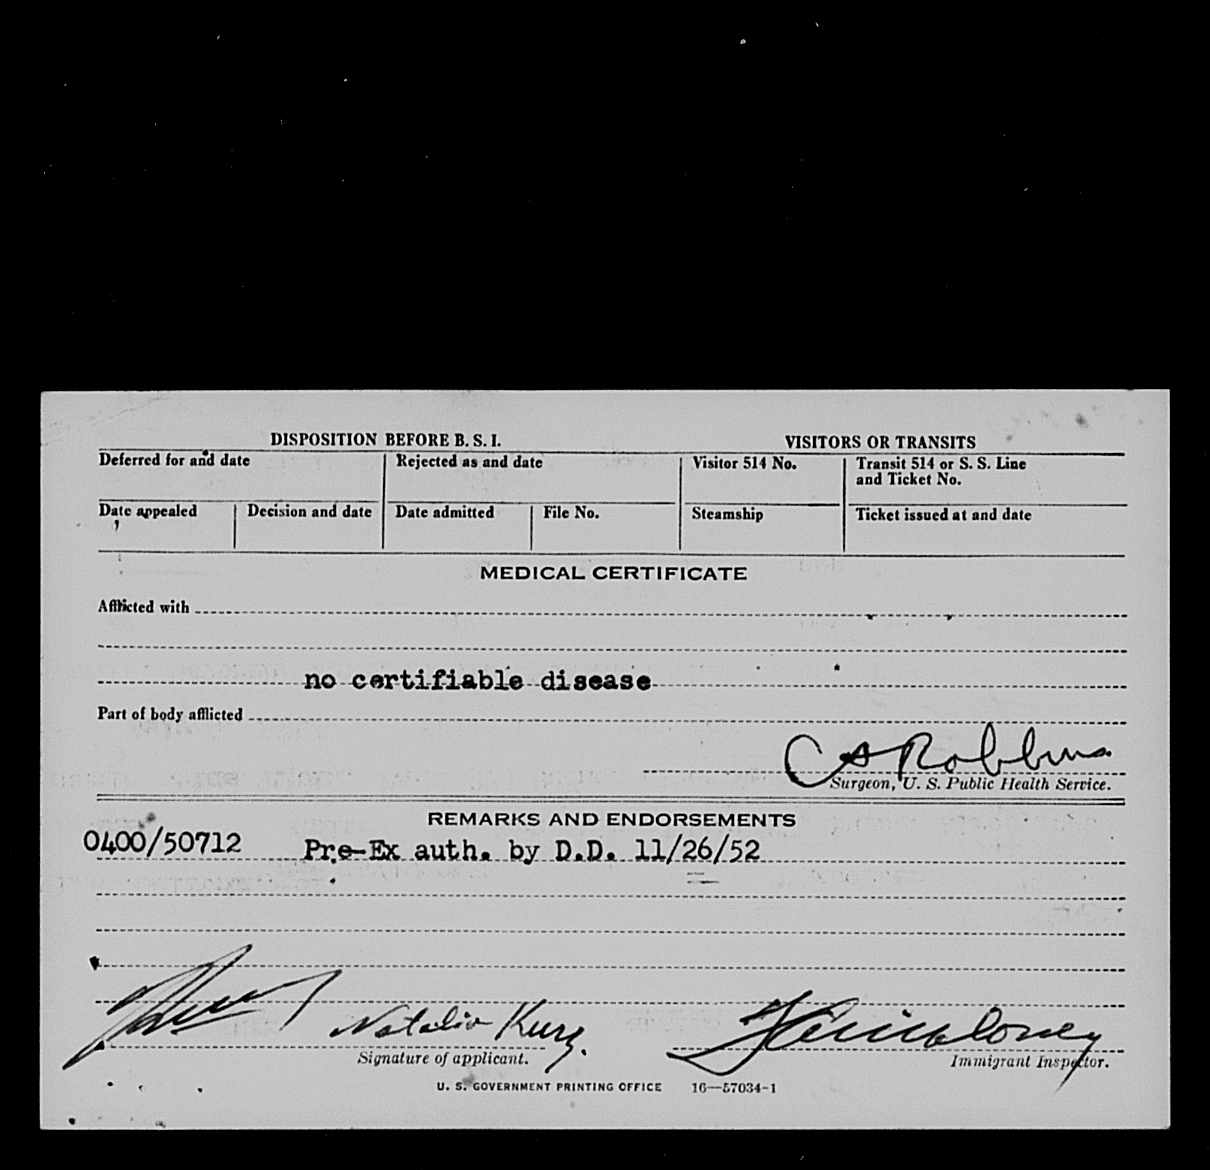 DISPOSITION BEFORE B. S. I.
VISITORS OR TRANSITS
Deferred for and date
Rejected as and date
Visitor 514 No.
Transit 514 or S. S. Line
and Ticket No.
Date appealed
Decision and date
Date admitted
File No.
Steamship
Ticket issued at and date
MEDICAL CERTIFICATE
Afflicted with
no certifiable disease
Part of body afflicted
C S Robbins
Surgeon, U. S. Public Health Service.
REMARKS AND ENDORSEMENTS
0400/50712 Pre-Ex auth. by D.D. 11/26/52
Natalio Kurz.
Signature of applicant.
Immigrant Inspector.
U. S. GOVERNMENT PRINTING OFFICE 16—57034-1